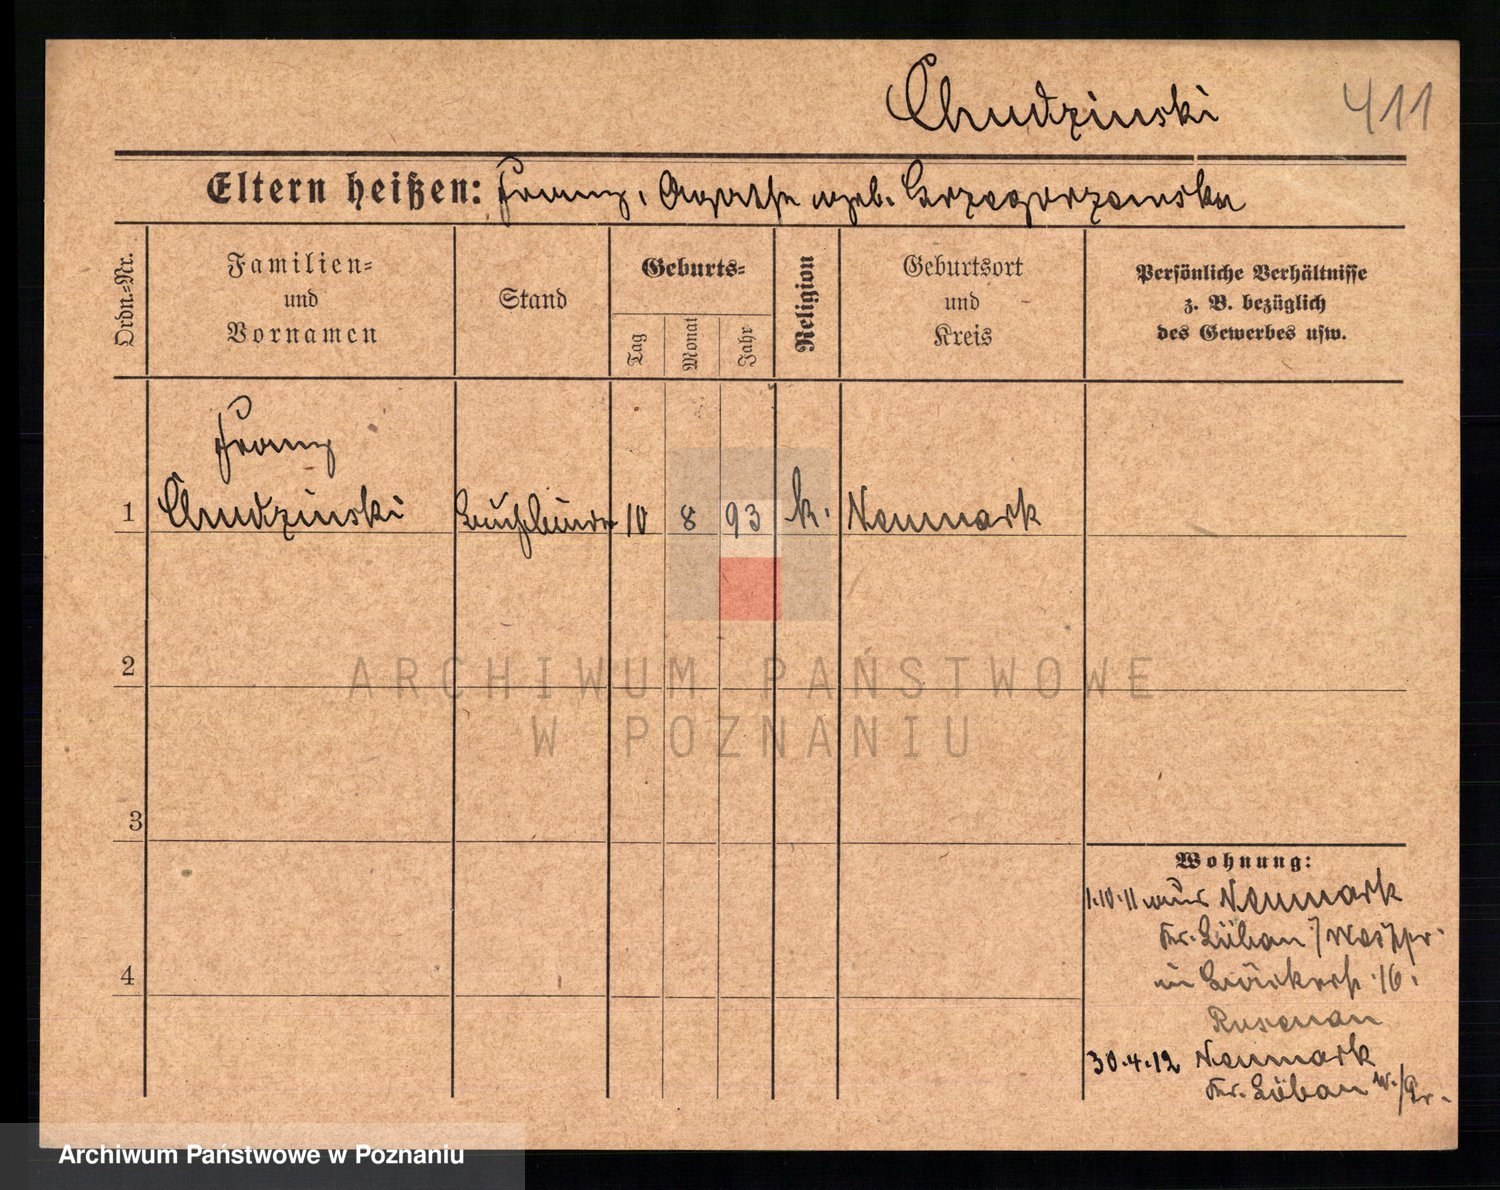 Chudzinski 411
Eltern heißen: Franz, Agathe geb. Grzegorzewska
Ordn.-Nr.
Familien-
und
Vornamen
Stand
Geburts-
Tag
Monat
Jahr
Religion
Geburtsort
und
Kreis
Persönliche Verhältnisse
z. B. bezüglich
des Gewerbes usw.
Franz
1 Chudzinski Buchbinder 10 8 93 k. Neumark
2
ARCHIWUM PAŃSTWOWE
W POZNANIU
3
4
Wohnung:
1.10.11 aus Neumark
Kr. Löbau /Westpr.
in 16.
30.4.12 Neumark
Kr. Löbau W./Pr.
Archiwum Państwowe w Poznaniu